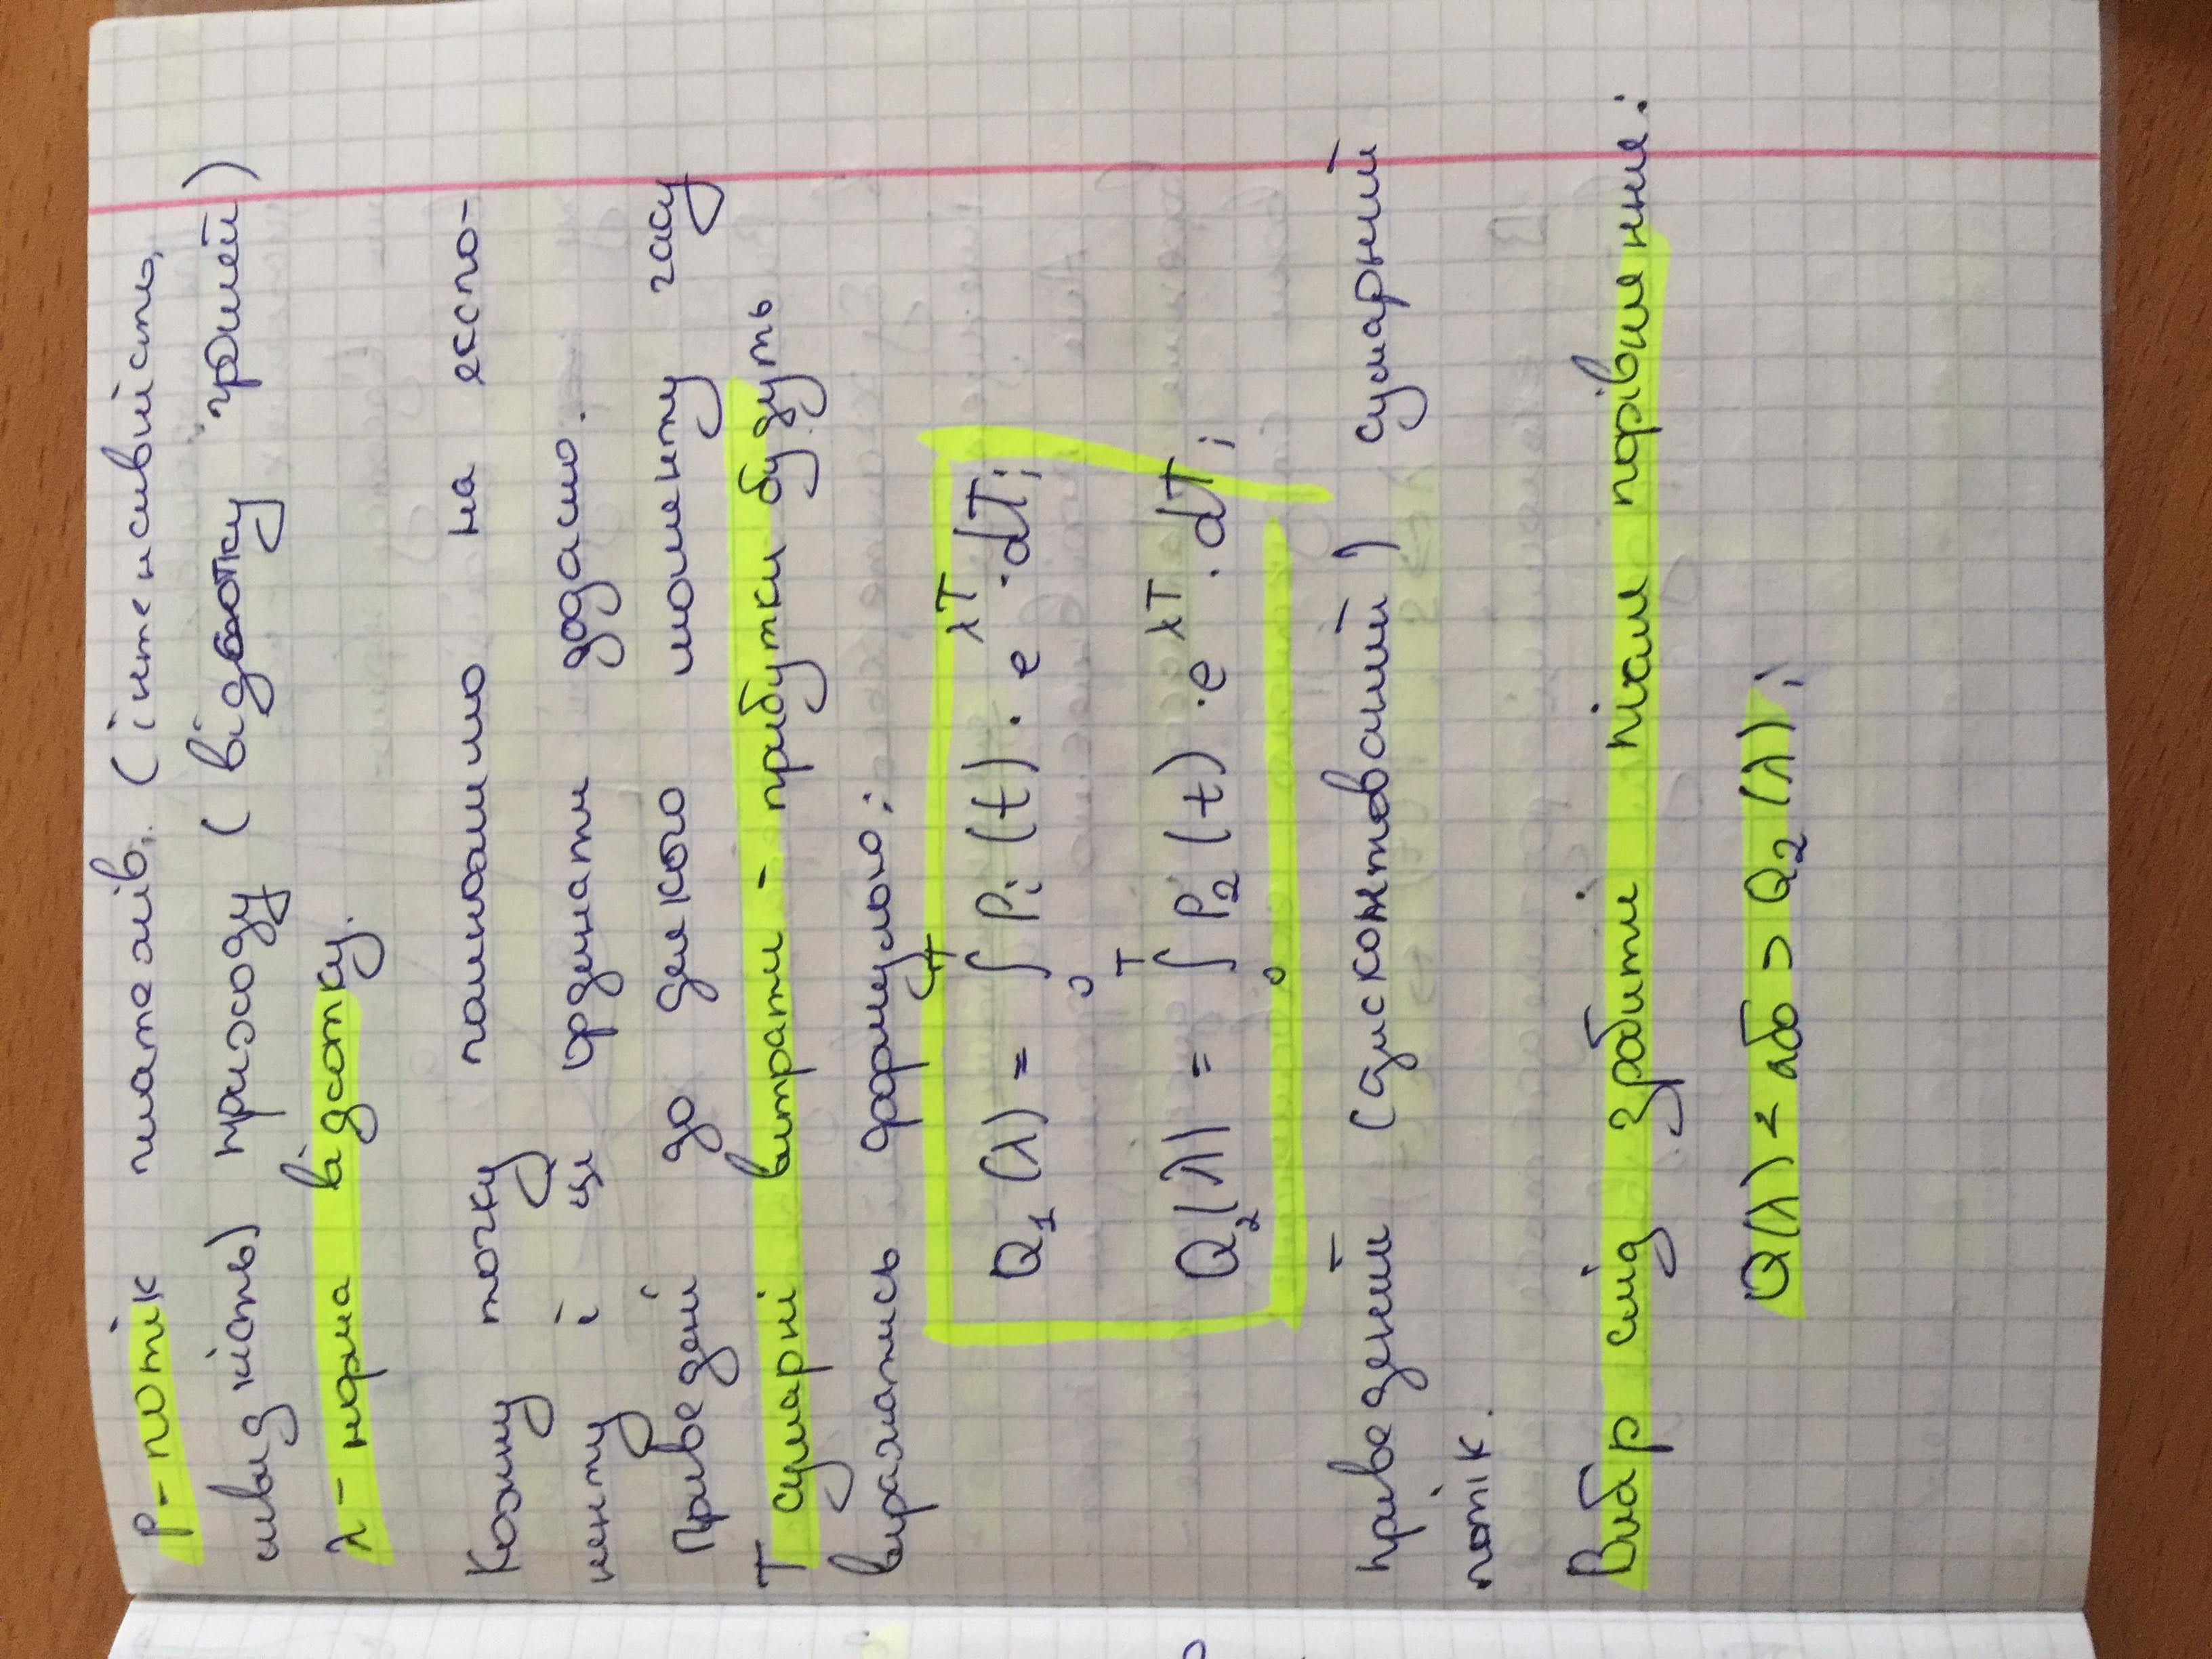 р - потік платежів. (інтенсивність,
швидкість) приходу (відсотку грошей)
λ - норма відсотку.
Кожну точку помножимо на експо-
ненту і ці ординати додамо.
Приведені до деякого моменту часу
Т сумарні витрати - прибутки будуть
виражатись формулою:
Q₁(λ) = ∫₀ᵀ Pᵢ(t) · e^{λT} · dT;
Q₂(λ) = ∫₀ᵀ P₂(t) · e^{λT} · dT;
приведений (дисконтований) сумарний
потік.
Вибір слід зробити після порівняння:
Q(λ) < або > Q₂(λ);